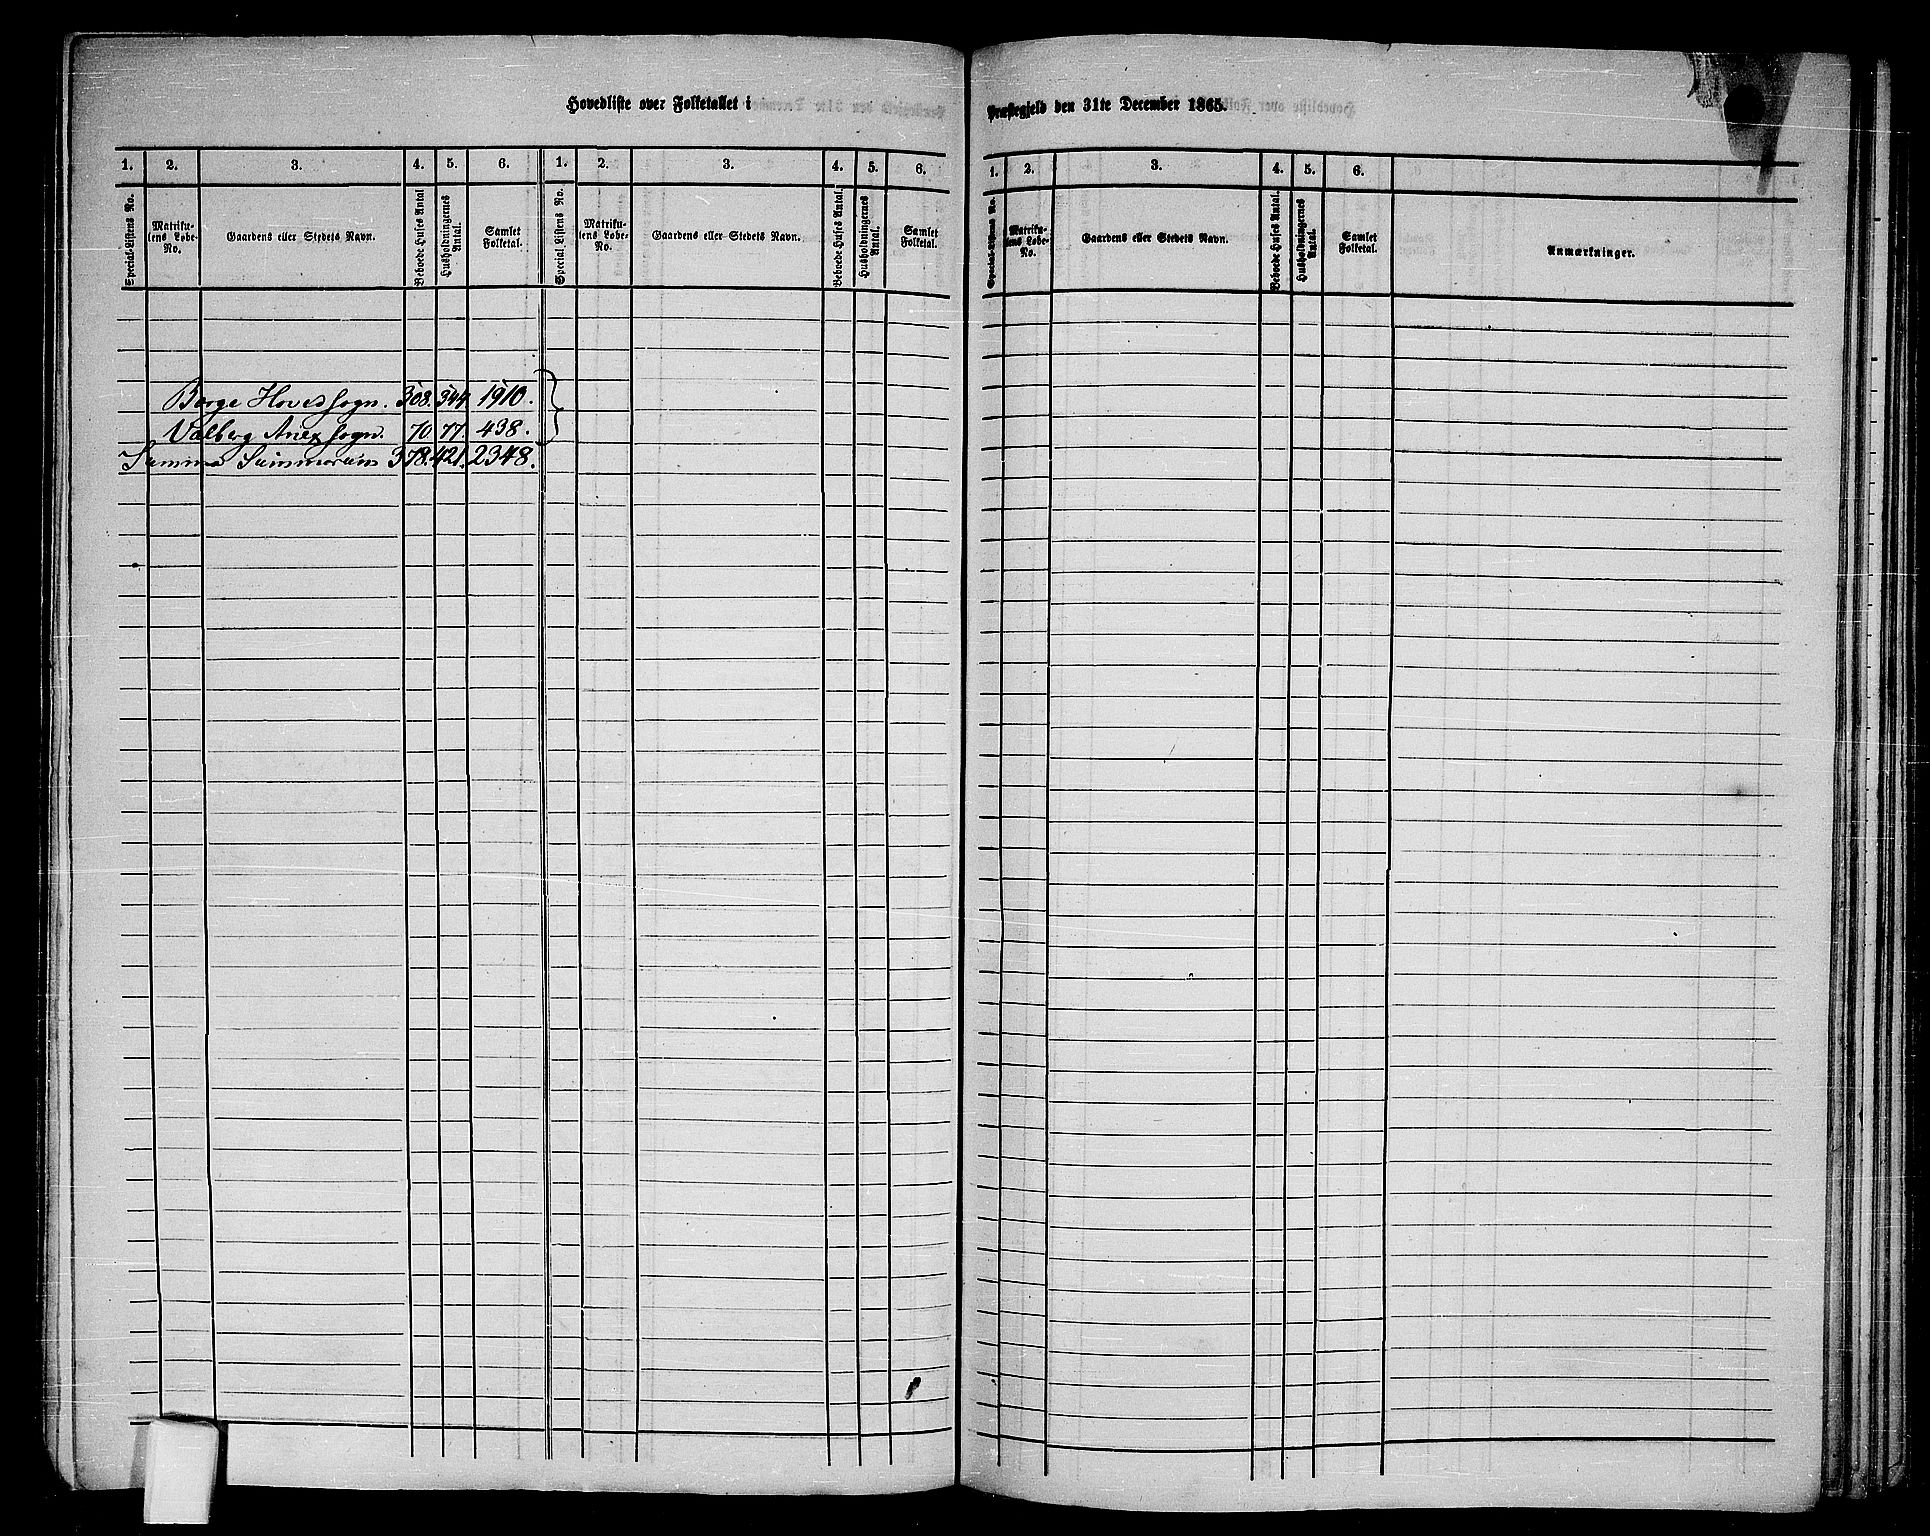 Hovedliste over Folketallet i
Præstegjeld den 31te December 1865.
1. 2. 3. 4. 5. 6. 1. 2. 3. 4. 5. 6.
Special-Listens No. Matrikulens Løbe-No. Gaardens eller Stedets Navn. Beboede Huses Antal Husholdningernes Antal. Samlet Folketal. Special-Listens No. Matrikulens Løbe-No. Gaardens eller Stedets Navn. Beboede Huses Antal. Husholdningernes Antal. Samlet Folketal.
Borge Hovedsogn. 308. 344. 1910.
Valberg Anexsogn. 70. 77. 438.
Summa Summarum 378. 421. 2348.
1. 2. 3. 4. 5. 6.
Special-Listens No. Matrikulens Løbe-No. Gaardens eller Stedets Navn. Beboede Huses Antal. Husholdningernes Antal. Samlet Folketal. Anmærkninger.